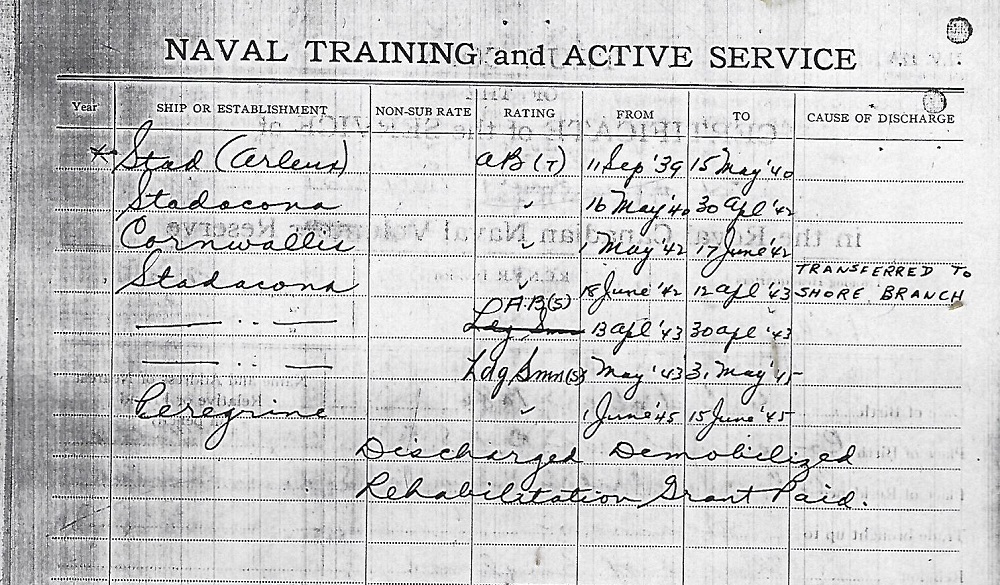 NAVAL TRAINING and ACTIVE SERVICE
Year SHIP OR ESTABLISHMENT NON-SUB RATE RATING FROM TO CAUSE OF DISCHARGE
* Stad (Arleux) AB (T) 11 Sep '39 15 May '40
Stadacona " 16 May '40 30 Apl '42
Cornwallis " 1 May '42 17 June '42
Stadacona " 18 June '42 12 Apl '43 TRANSFERRED TO
SHORE BRANCH
A.B(S)
— " — Ldg Smn 13 Apl '43 30 Apl '43
— " — Ldg Smn(S) 1 May '43 31 May '45
Peregrine " 1 June '45 15 June '45
Discharged Demobilized
Rehabilitation Grant Paid.